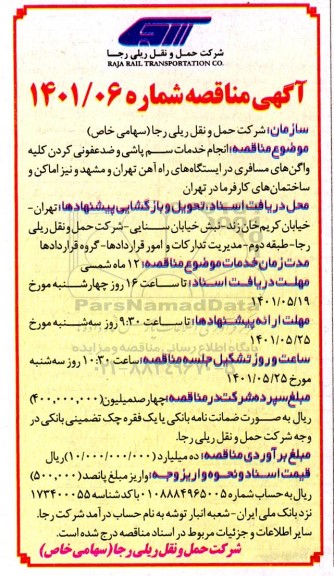 شرکت حمل و نقل ریلی رجا
RAJA RAIL TRANSPORTATION CO.
آگهی مناقصه شماره ۱۴۰۱/۰۶
سازمان: شرکت حمل و نقل ریلی رجا (سهامی خاص)
موضوع مناقصه: انجام خدمات سم پاشی و ضدعفونی کردن کلیه
واگن‌های مسافری در ایستگاه‌های راه آهن تهران و مشهد و نیز اماکن و
ساختمان‌های کارفرما در تهران
محل دریافت اسناد، تحویل و بازگشایی پیشنهادها: تهران-
خیابان کریم خان زند-نبش خیابان سنایی-شرکت حمل و نقل ریلی
رجا-طبقه دوم-مدیریت تدارکات و امور قراردادها-گروه قراردادها
مدت زمان خدمات موضوع مناقصه: ۱۲ ماه شمسی
مهلت دریافت اسناد: تا ساعت ۱۶ روز چهارشنبه مورخ
۱۴۰۱/۰۵/۱۹
مهلت ارائه پیشنهادها: تا ساعت ۹:۳۰ روز سه‌شنبه مورخ
۱۴۰۱/۰۵/۲۵
ساعت و روز تشکیل جلسه مناقصه: ساعت ۱۰:۳۰ روز سه‌شنبه
مورخ ۱۴۰۱/۰۵/۲۵
مبلغ سپرده شرکت در مناقصه: چهارصدمیلیون (۴۰۰,۰۰۰,۰۰۰)
ریال به صورت ضمانت نامه بانکی یا یک فقره چک تضمینی بانکی در
وجه شرکت حمل و نقل ریلی رجا.
مبلغ برآوردی مناقصه: ده میلیارد (۱۰/۰۰۰/۰۰۰/۰۰۰) ریال
قیمت اسناد و نحوه واریز وجه: واریز مبلغ پانصد (۵۰۰,۰۰۰)
ریال به حساب شماره ۰۱۰۸۸۸۴۹۶۵۰۰۵ با کد شناسه ۱۷۳۴۰۰۵۵
نزد بانک ملی ایران-شعبه انبار توشه به نام حساب درآمد شرکت رجا.
سایر اطلاعات و جزئیات مربوط در اسناد مناقصه درج شده است.
شرکت حمل و نقل ریلی رجا (سهامی خاص)
ParsNamadData
پایگاه اطلاع رسانی مناقصه و مزایده